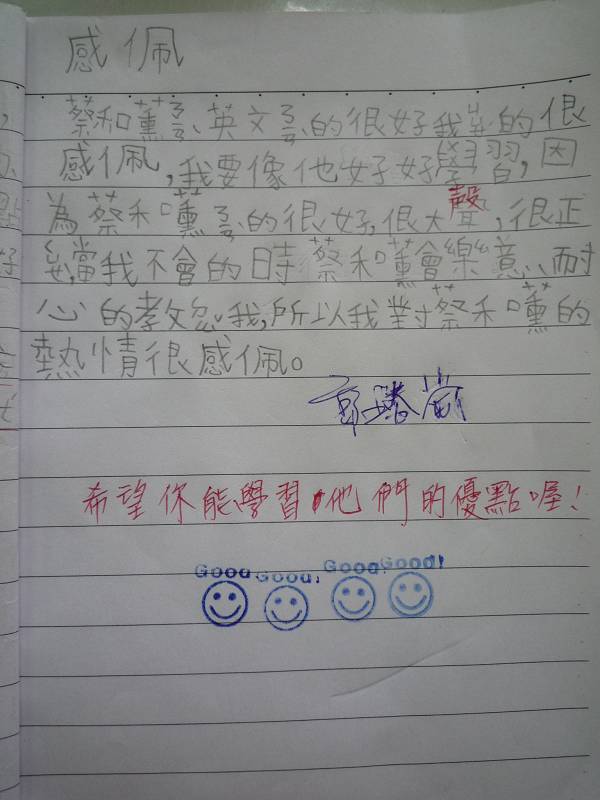 感佩
蔡和薰 英文 的很好我 的很
感佩,我要像他好好學習,因
為蔡禾 的很好,很大聲,很正
當我不會的時蔡和薰會樂意、耐
心的教 我,所以我對蔡禾 的
熱情很感佩。
希望你能學習他們的優點喔!
Good Good! Good! Good!